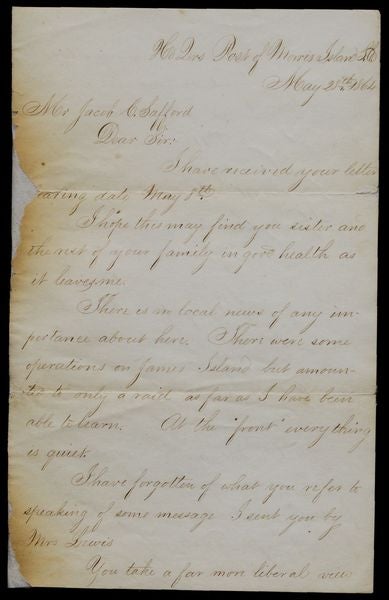 Hd Qrs Post of Morris Island S.C.
May 25th 1864
Mr Jacob C. Safford
Dear Sir:
I have received your letter
bearing date May 8th.
I hope this may find you sister and
the rest of your family in good health as
it leaves me.
There is no local news of any im-
portance about here. There were some
operations on James Island but amoun-
ted to only a raid as far as I have been
able to learn. At the "front" everything
is quiet.
I have forgotten of what you refer to
speaking of some message I sent you by
Mrs Lewis
You take a far more liberal view